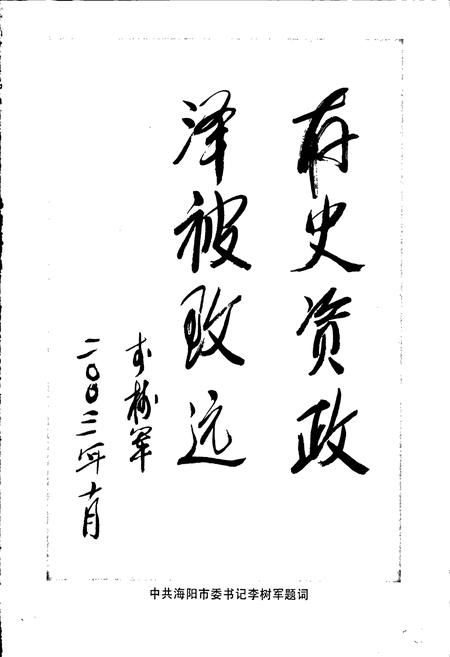 存史资政
泽被致远
李树军
二〇〇三年十月
中共海阳市委书记李树军题词